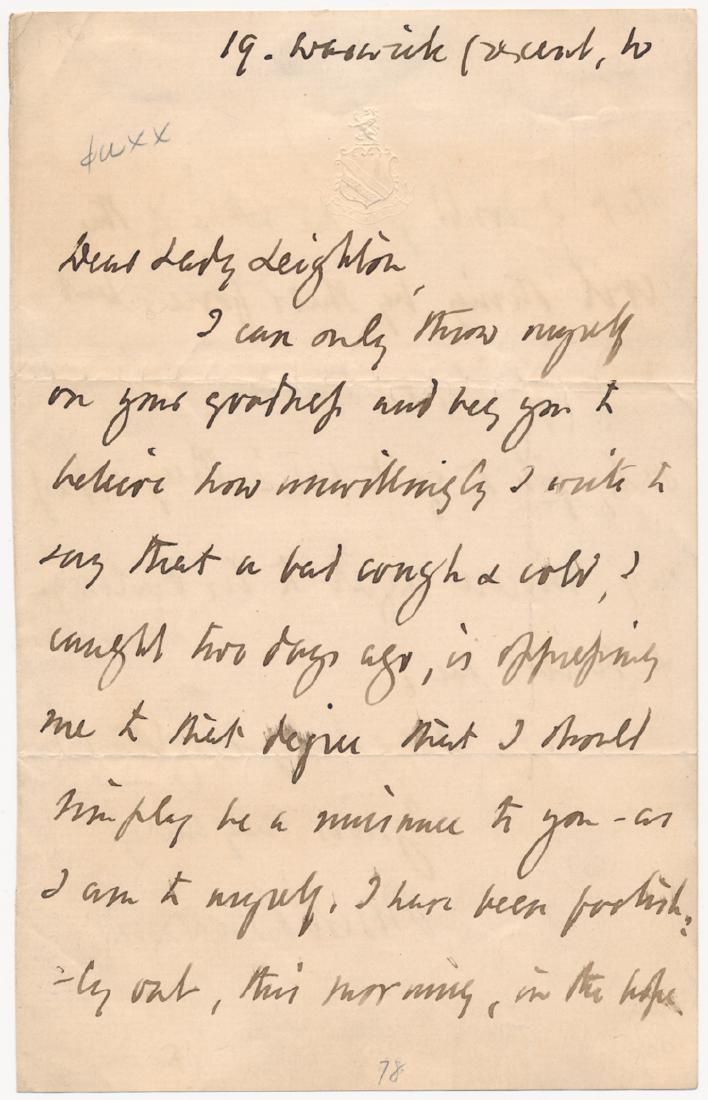 19. Warwick Crescent, W
Dear Lady Leighton,
I can only throw myself
on your goodness and beg you to
believe how unwillingly I write to
say that a bad cough & cold, I
caught two days ago, is oppressing
me to that degree that I should
simply be a nuisance to you - as
I am to myself. I have been foolish=
=ly out, this morning, in the hope
78